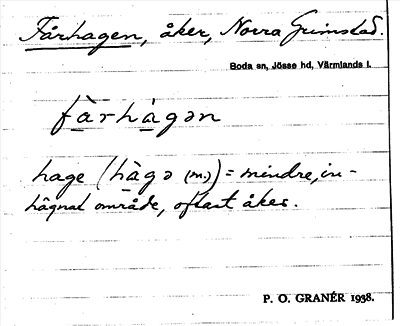 Fårhagen, åker, Norra Grimstad.
Boda sn, Jösse hd, Värmlands l.
fàrhàgən
hage (hàgə (m.)) = mindre, in-
hägnat område, oftast åker.
P. O. GRANÉR 1938.